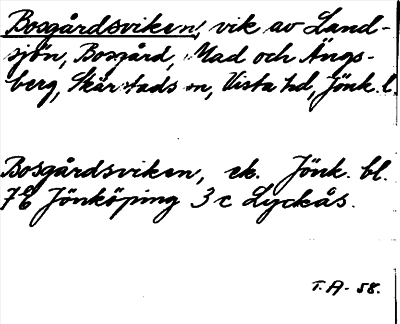 Bosgårdsviken, vik av Land-
sjön, Bosgård, Mad och Ängs-
berg, Skärstads sn, Vista hd, Jönk. l.
Bosgårdsviken, ek. Jönk. bl.
7E Jönköping 3 c Lyckås.
T. A. - 58.